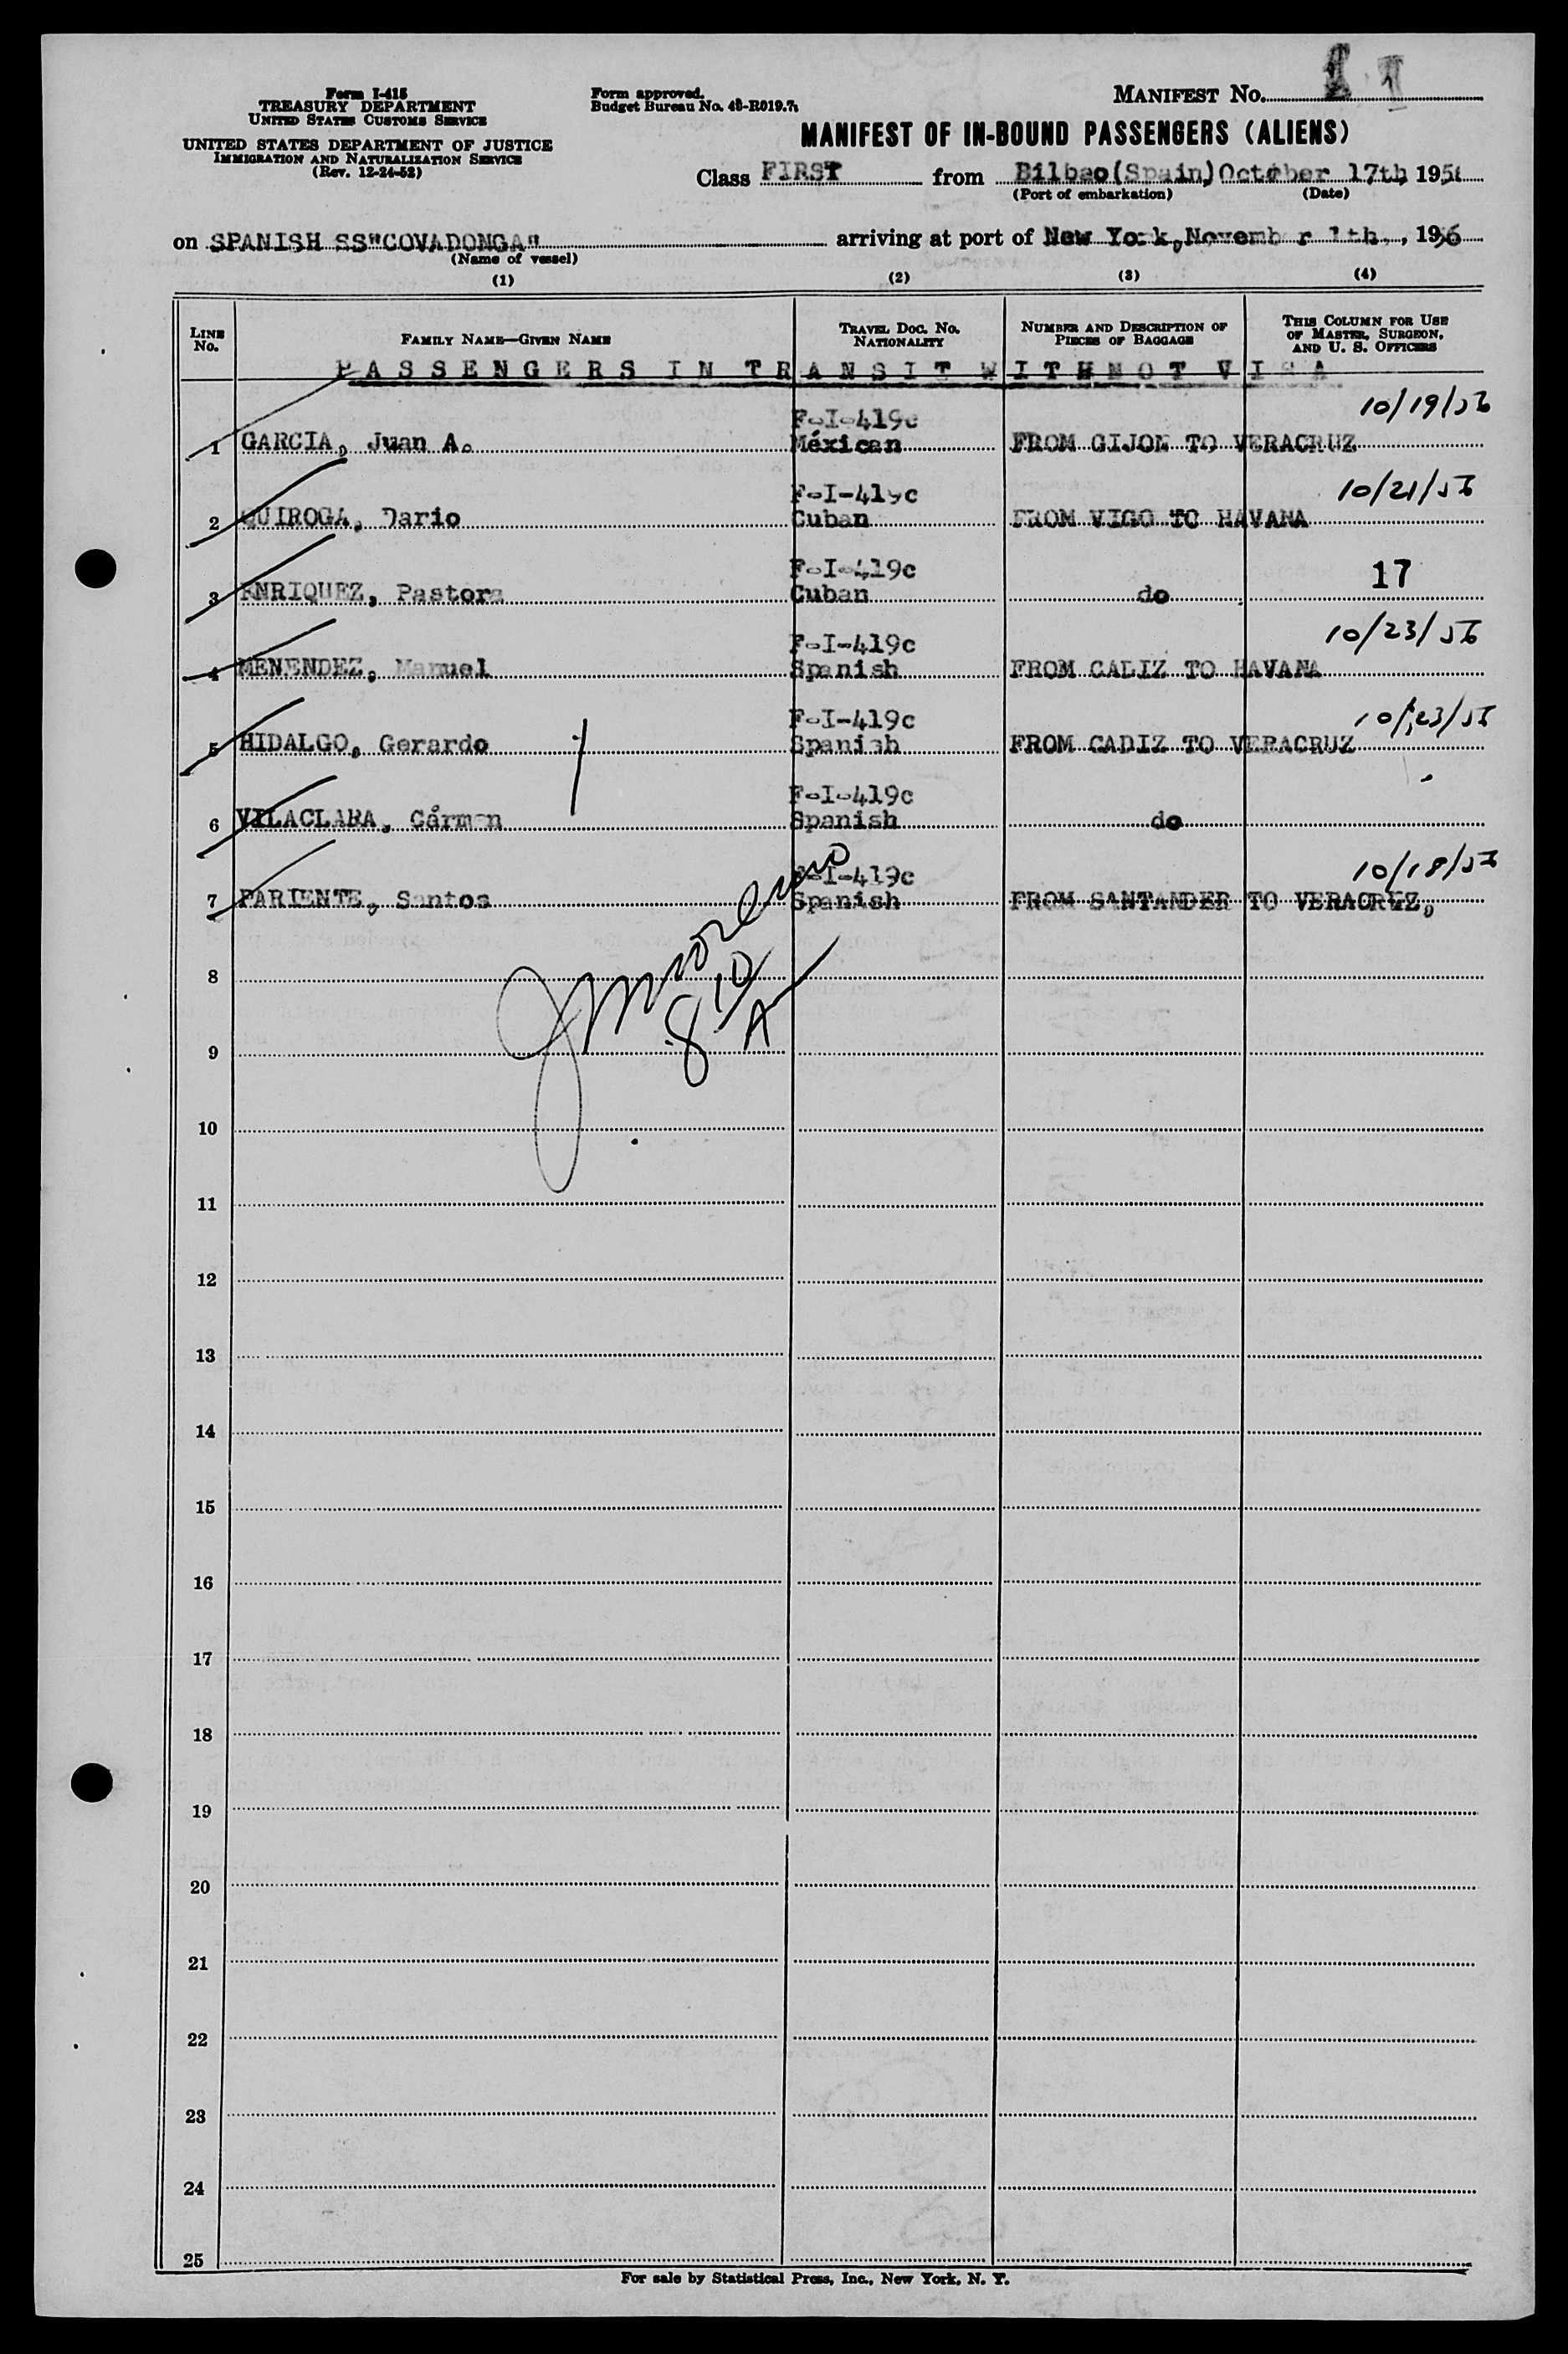 Form I-415
TREASURY DEPARTMENT
UNITED STATES CUSTOMS SERVICE
UNITED STATES DEPARTMENT OF JUSTICE
IMMIGRATION AND NATURALIZATION SERVICE
(Rev. 12-24-52)
Form approved.
Budget Bureau No. 43-R019.7.
MANIFEST NO. 1
MANIFEST OF IN-BOUND PASSENGERS (ALIENS)
Class FIRST from Bilbao(Spain) October 17th, 1956
(Port of embarkation) (Date)
on SPANISH SS"COVADONGA" arriving at port of New York, November 1th., 1956
(Name of vessel)
(1) (2) (3) (4)
LINE No. FAMILY NAME—GIVEN NAME TRAVEL DOC. NO. NATIONALITY NUMBER AND DESCRIPTION OF PIECES OF BAGGAGE THIS COLUMN FOR USE OF MASTER, SURGEON, AND U. S. OFFICERS
PASSENGERS IN TRANSIT WITHNOT VISA
F-I-419c 10/19/56
1 GARCIA, Juan A. Méxican FROM GIJON TO VERACRUZ
F-I-419c 10/21/56
2 QUIROGA, Dario Cuban FROM VIGO TO HAVANA
F-I-419c 17
3 ENRIQUEZ, Pastora Cuban do
F-I-419c 10/23/56
4 MENENDEZ, Manuel Spanish FROM CADIZ TO HAVANA
F-I-419c 10/23/56
5 HIDALGO, Gerardo Spanish FROM CADIZ TO VERACRUZ
F-I-419c
6 VILACLARA, Cármen Spanish do
F-I-419c 10/18/56
7 PARIENTE, Santos Spanish FROM SANTANDER TO VERACRUZ,
J Moreno
8
810
A
9
10
11
12
13
14
15
16
17
18
19
20
21
22
23
24
25
For sale by Statistical Press, Inc., New York, N. Y.